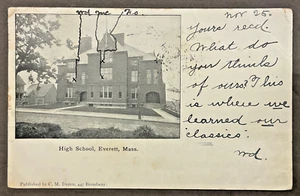 Nov 25.
Yours recd.
What do
you think
of ours? This
is where we
learned our
"classics".
Wd.
High School, Everett, Mass.
Published by C. M. 442 Broadway.